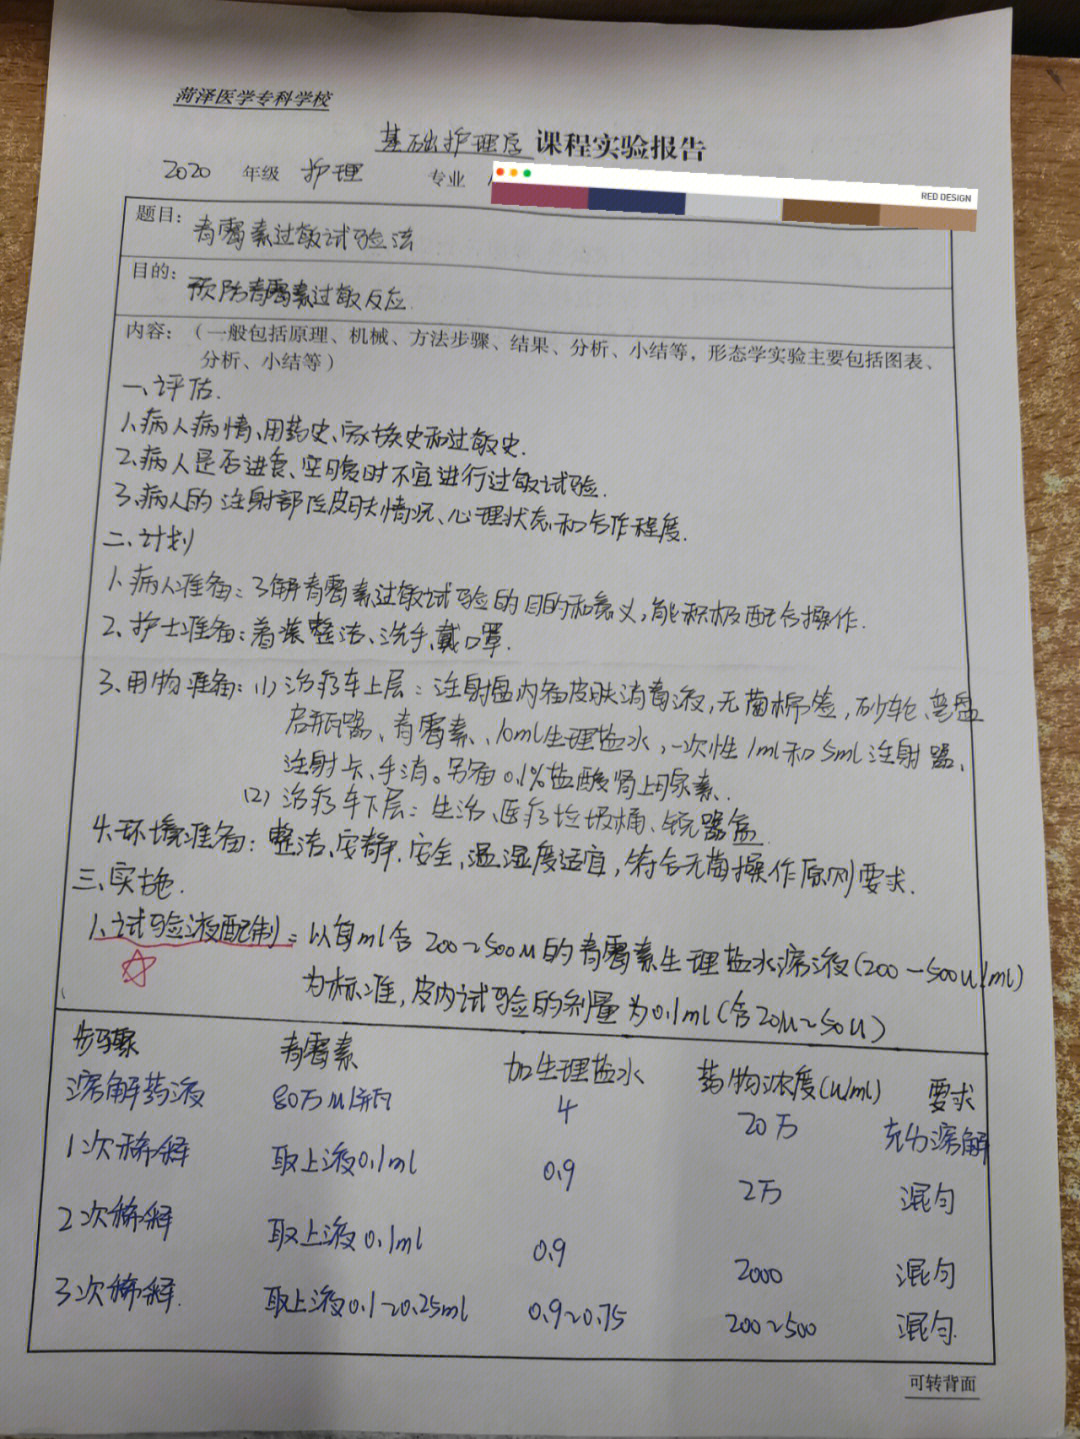 菏泽医学专科学校
基础护理学 课程实验报告
2020 年级 护理 专业
RED DESIGN
题目: 青霉素过敏试验法
目的: 预防青霉素过敏反应.
内容: (一般包括原理、机械、方法步骤、结果、分析、小结等, 形态学实验主要包括图表、
分析、小结等)
一、评估.
1、病人病情、用药史、家族史和过敏史.
2、病人是否进食、空腹时不宜进行过敏试验.
3、病人的注射部位皮肤情况、心理状态和合作程度.
二、计划
1、病人准备: 了解青霉素过敏试验的目的和意义, 能积极配合操作.
2、护士准备: 着装整洁、洗手、戴口罩.
3、用物准备: (1) 治疗车上层: 注射盘内备皮肤消毒液, 无菌棉签, 砂轮、弯盘
启瓶器、青霉素、10ml生理盐水, 一次性1ml和5ml注射器、
注射卡、手消。另备0.1%盐酸肾上腺素.
(2) 治疗车下层: 生活、医疗垃圾桶、锐器盒
4、环境准备: 整洁、安静、安全、温湿度适宜, 符合无菌操作原则要求.
三、实施.
1、试验液配制: 以每ml含 200~500u的青霉素生理盐水溶液(200-500u/ml)
为标准, 皮内试验的剂量为0.1ml(含20u~50u)
步骤 青霉素 加生理盐水 药物浓度(u/ml) 要求
溶解药液 80万u/瓶 4 20万 充分溶解
1次稀释 取上液0.1ml 0.9 2万 混匀
2次稀释 取上液0.1ml 0.9 2000 混匀
3次稀释. 取上液0.1~0.25ml 0.9~0.75 200~500 混匀.
可转背面